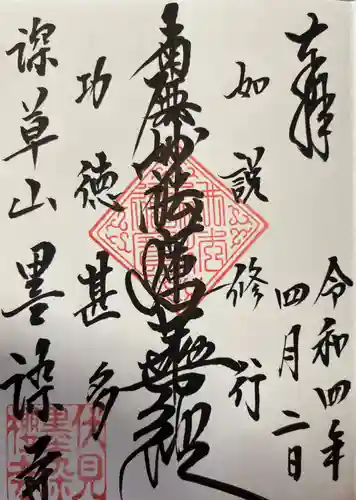 奉拝
令和四年
四月二日
如説修行
南無妙法蓮華経
功徳甚多
深草山 墨染寺
伏見
墨染
櫻寺